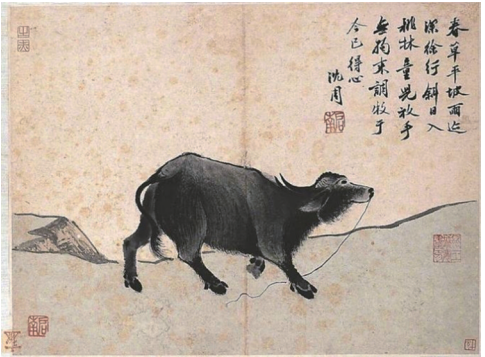 春草平坡雨迹
深徐行斜日入
桃林童兒放手
無拘束調牧于
今已得心
沈周